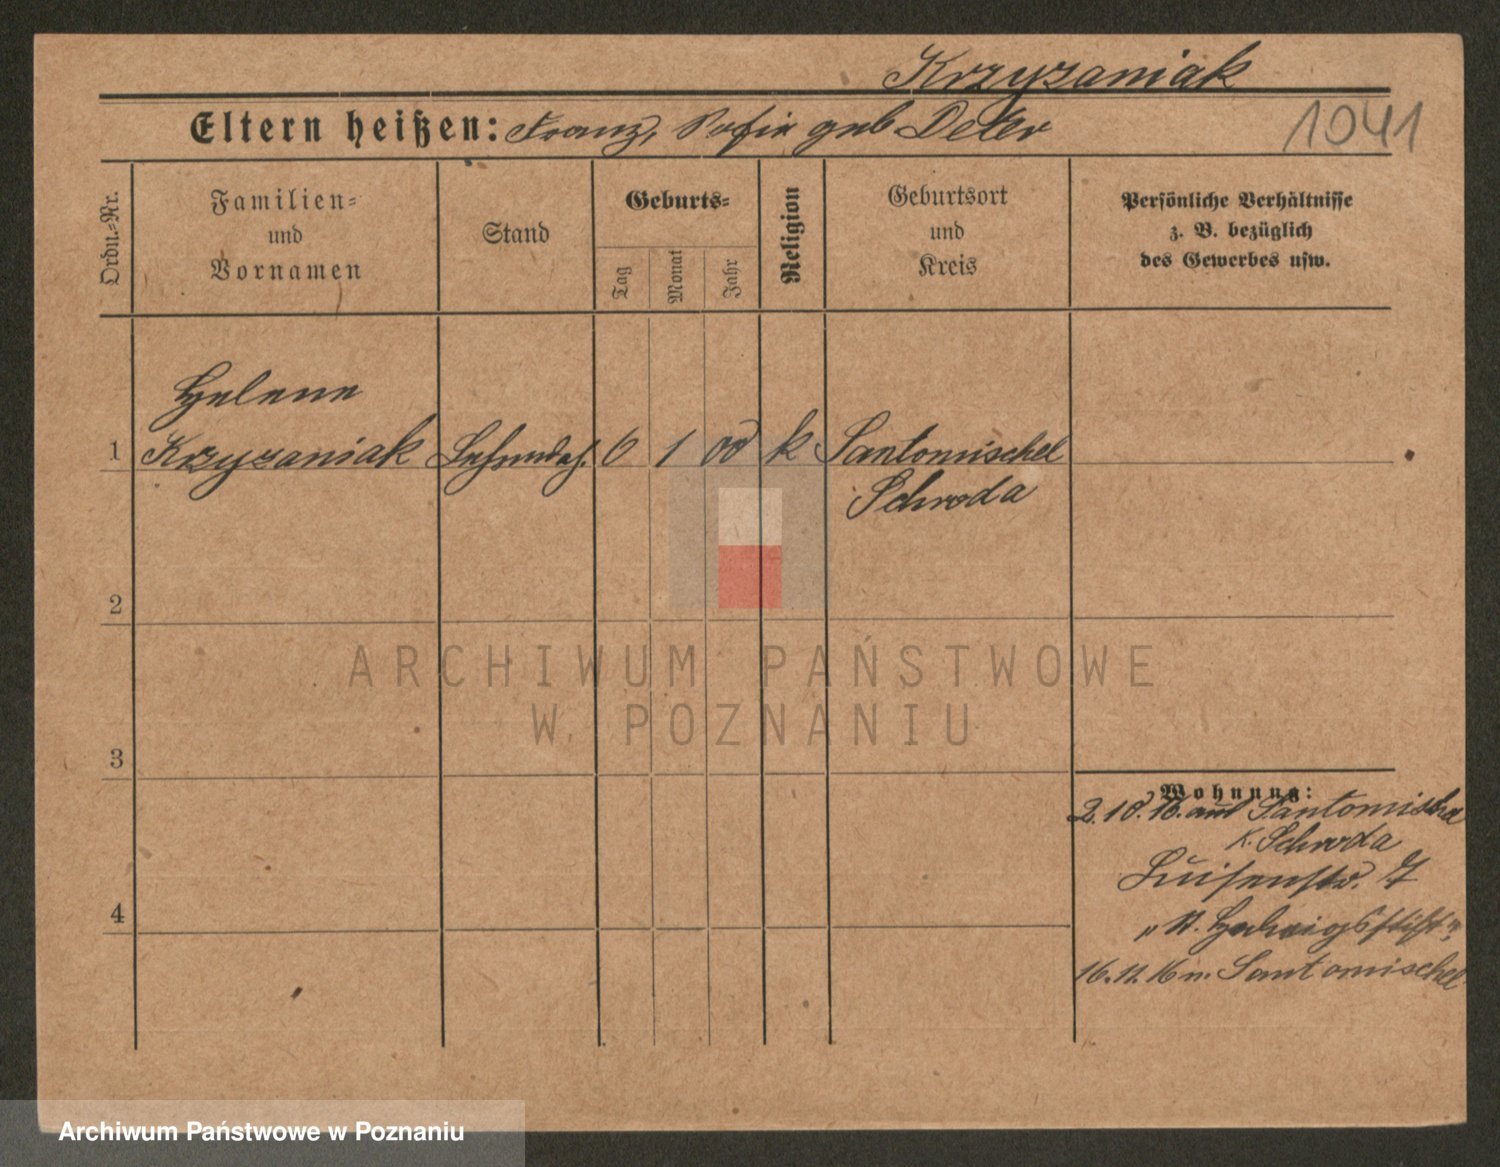 Krzyzaniak
Eltern heißen: Franz, Sofie geb Deter
1041
Ordn.-Nr.
Familien-
und
Vornamen
Stand
Geburts-
Tag
Monat
Jahr
Religion
Geburtsort
und
Kreis
Persönliche Verhältnisse
z. B. bezüglich
des Gewerbes usw.
Helene
1 Krzyzaniak 6 1 00 k Santomischel
Schroda
2
3
4
Wohnung:
2.10.16. aus Santomischel
K. Schroda
Luisenstr. 7
"St. Hedwigsstift"
16.11.16 n. Santomischel
ARCHIWUM PAŃSTWOWE
W POZNANIU
Archiwum Państwowe w Poznaniu